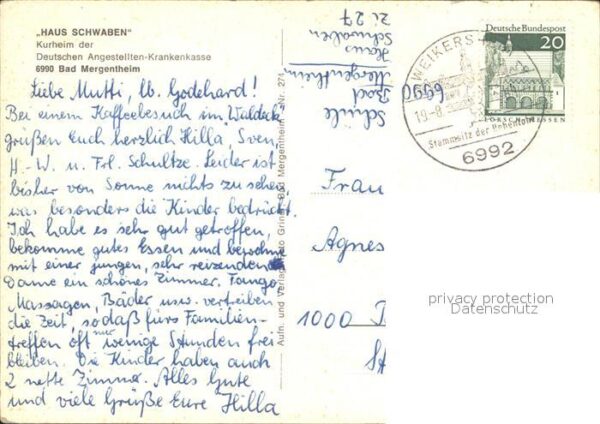 „HAUS SCHWABEN"
Kurheim der
Deutschen Angestellten-Krankenkasse
6990 Bad Mergentheim
Liebe Mutti, lb. Godehard!
Bei einem Kaffeebesuch im "Waldeck"
grüßen Euch herzlich Hilla, Sven,
H.-W. u. Frl. Schultze. Leider ist
bisher von Sonne nichts zu sehen
was besonders die Kinder bedrückt.
Ich habe es sehr gut getroffen,
bekomme gutes Essen und bewohne
mit einer jungen, sehr reizenden
Dame ein schönes Zimmer. Fango,
Massagen, Bäder usw. vertreiben
die Zeit, sodaß fürs Familien-
treffen oft nur wenige Stunden frei
bleiben. Die Kinder haben auch
2 nette Zimmer. Alles Gute
und viele Grüße Eure Hilla
Aufn. und Verlag Bad Mergentheim Nr. 271
6990
Mergentheim
Haus
Schwaben
Zi. 27
WEIKERS
19.-8.
Stammsitz der Hohenlohe
6992
Deutsche Bundespost
20
LORSCH/HESSEN
Frau
Agnes
1000
privacy protection
Datenschutz